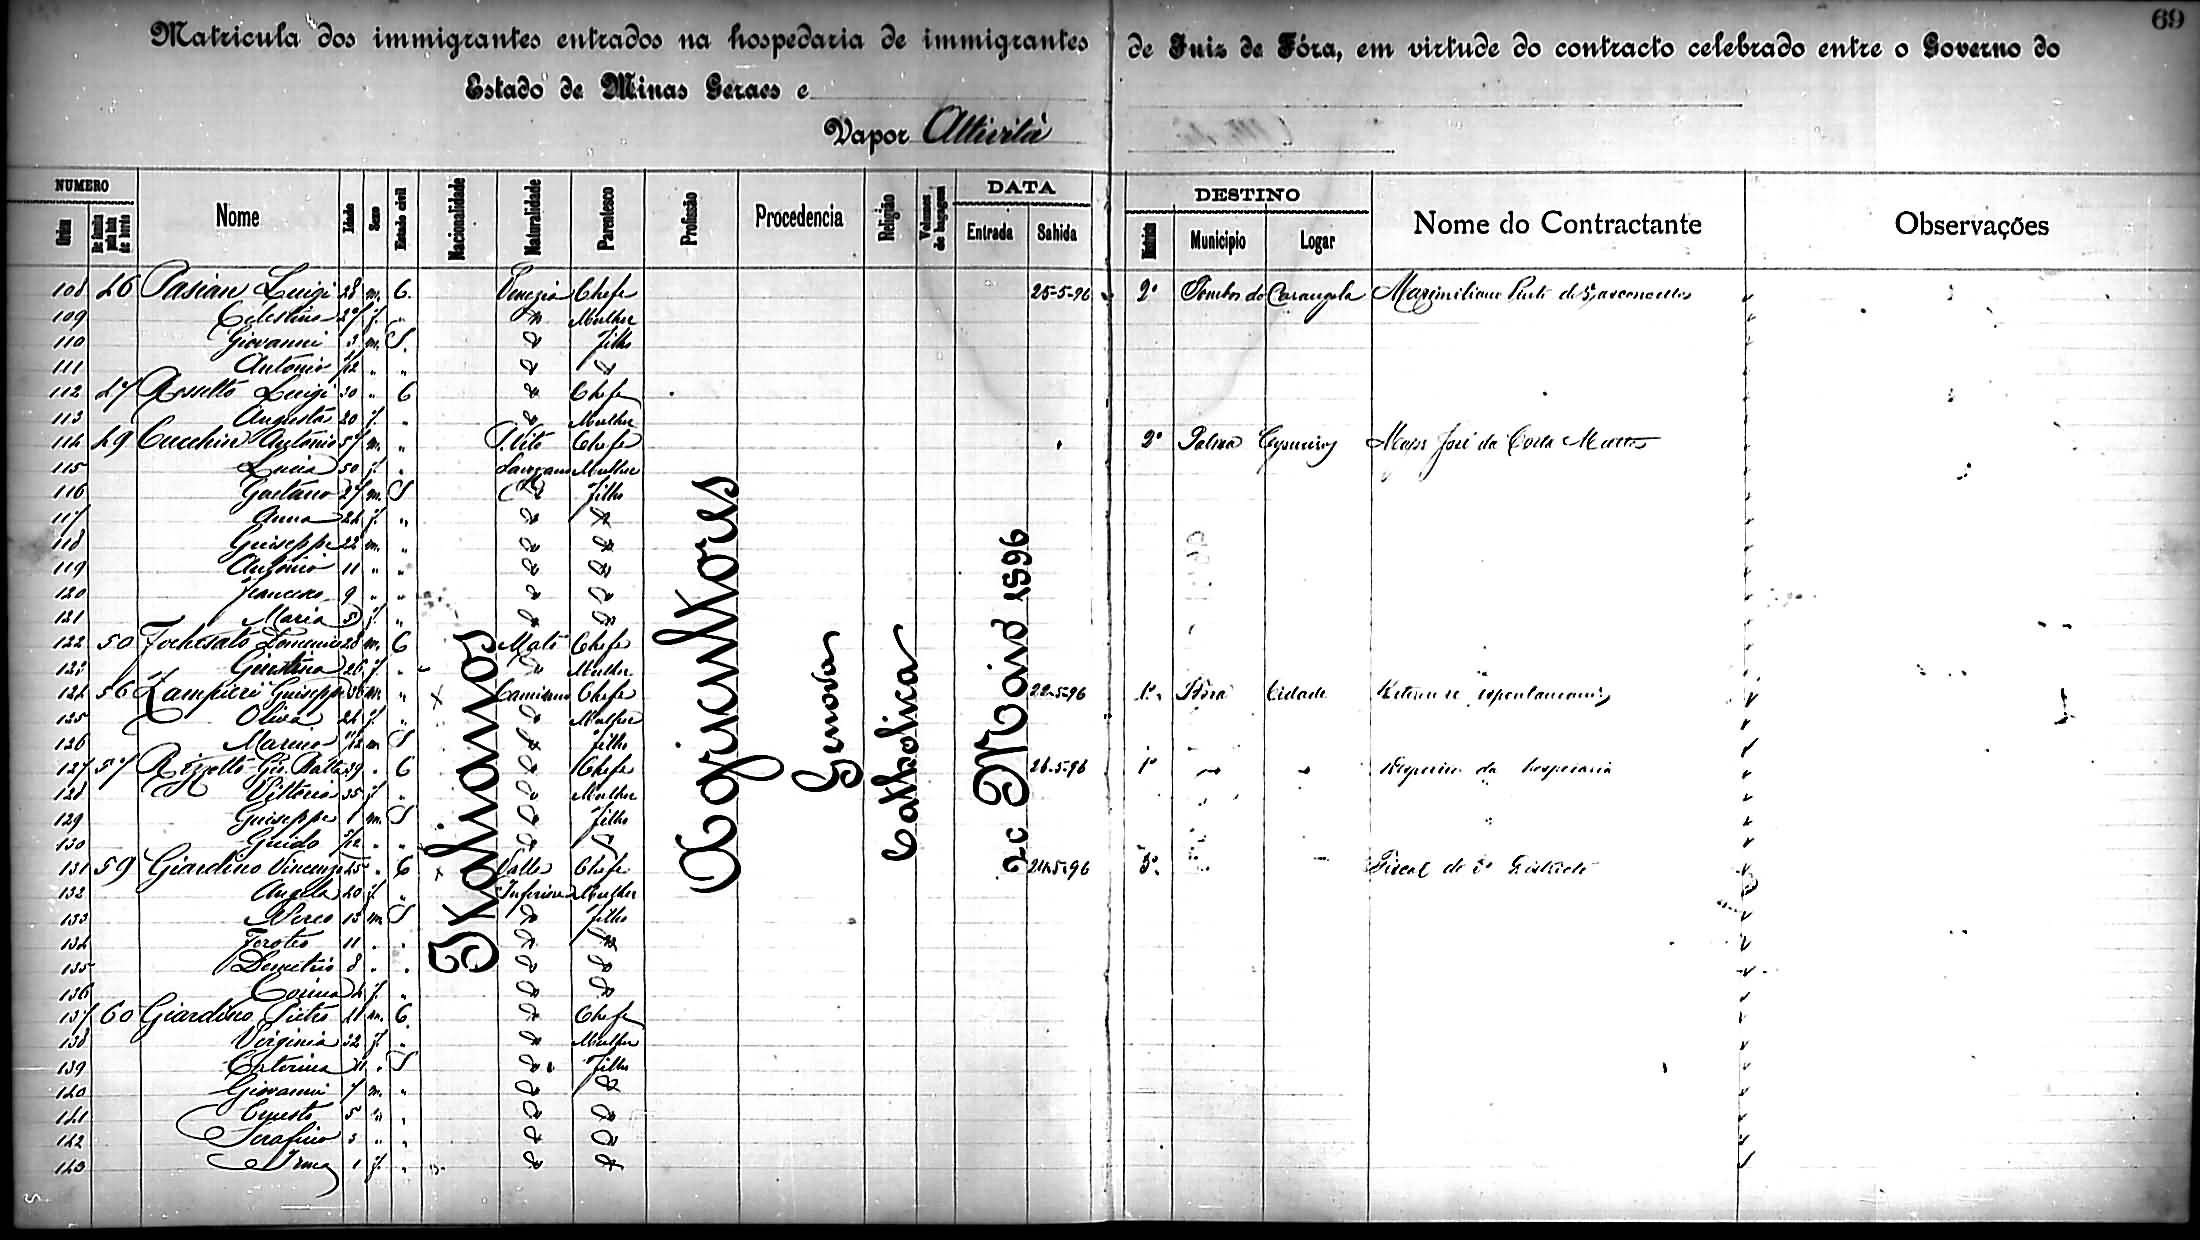 69
Matricula dos immigrantes entrados na hospedaria de immigrantes de Juiz de Fóra, em virtude do contracto celebrado entre o Governo do
Estado de Minas Geraes e
Vapor Attività
NUMERO DATA DESTINO
Ordem Nome Idade Sexo Estado civil Nacionalidade Naturalidade Parentesco Profissão Procedencia Religião Volumes de bagagem Entrada Sahida Districto Municipio Logar Nome do Contractante Observações
Italianos
Agricultores
Genova
Catholica
20 Maio 1896
108 46 Pasian Luigi 28 m. C. Venezia Chefe 25-5-96 2º Tombos do Carangola Maximiliano Pinto de Vasconcellos
109 Celestina 27 f. " " Mulher
110 Giovanni 3 m. S. " Filho
111 Antonio /12 " " " "
112 47 Rossetto Luigi 30 " C " Chefe
113 Augusta 20 f. " " Mulher
114 49 Cucchin Antonio 57 m. " S. Vito Chefe 2º Palma Cysneiros Major José da Costa Mattos
115 Lucia 50 f. " Mulher
116 Gaetano 27 m. S " Filho
117 Anna 24 f. " " "
118 Guiseppe 22 m. " " "
119 Antonio 11 " " " "
120 Francesco 9 " " " "
121 Maria 5 f. " " "
122 50 Fochesato Domenico 28 m. C Chefe
123 Giustina 26 f. " " Mulher
124 56 Zampieri Guiseppe 36 m. " Camisano Chefe 22-5-96 1º Fóra Cidade Retirou-se espontaneamte
125 Oliva 24 f. " " Mulher
126 Marino /12 m S " Filho
127 57 Rizzotto Gio. Batta 39 " C " Chefe 26-5-96 1º " " da hospedaria
128 Vittoria 35 f " " Mulher
129 Guiseppe 1 m. S " Filho
130 Guido /12 " " " "
131 59 Giardino Vincenzo 45 " C Valle Chefe 24-5-96 3º " " Fiscal do 3º Districto
132 Angela 40 f. " Inferiore Mulher
133 Nereo 13 m. S " Filho
134 11 " " " "
135 Demetrio 8 " " " "
136 Corina 4 f. " " "
137 60 Giardino Pietro 41 m. C. " Chefe
138 Virginia 32 f. " " Mulher
139 Catterina 11 " S " Filho
140 Giovanni 7 m. " " "
141 Ernesto 5 " " " "
142 Serafino 3 " " " "
143 Irma 1 f. " " "